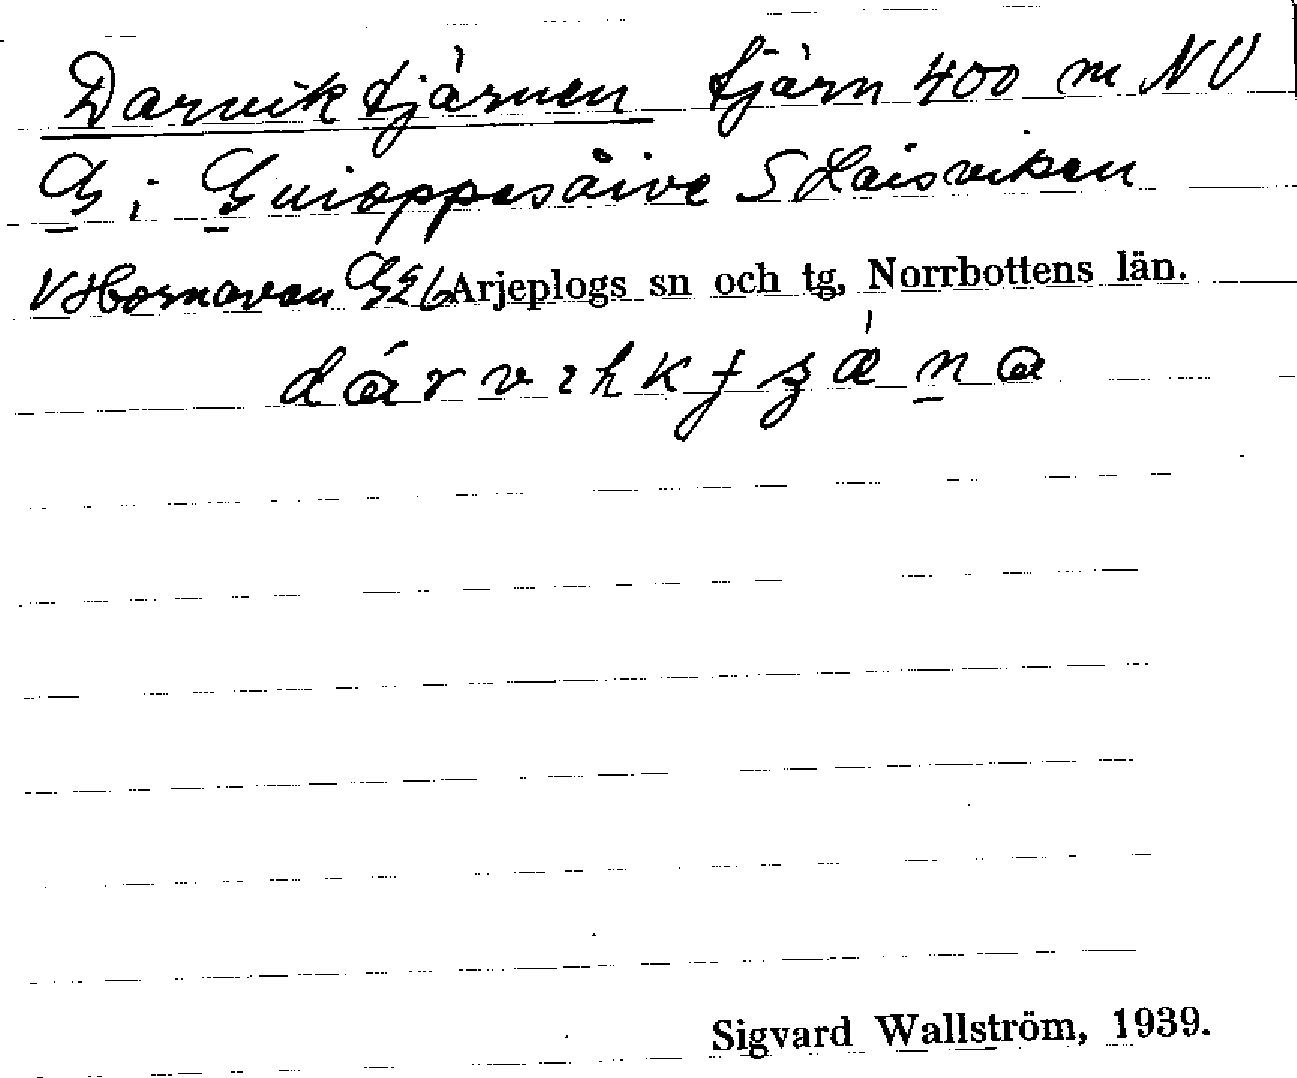 Darviktjärnen tjärn 400 m NV
G i Guioppesåive S Laisviken
V Hornavan G26 Arjeplogs sn och tg, Norrbottens län.
Sigvard Wallström, 1939.